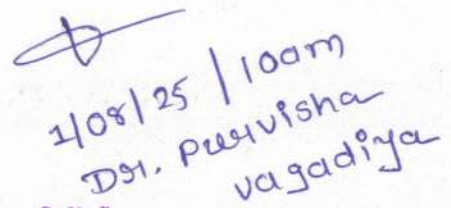 1/08/25 | 10am
Dr. Purvisha
vagadiya